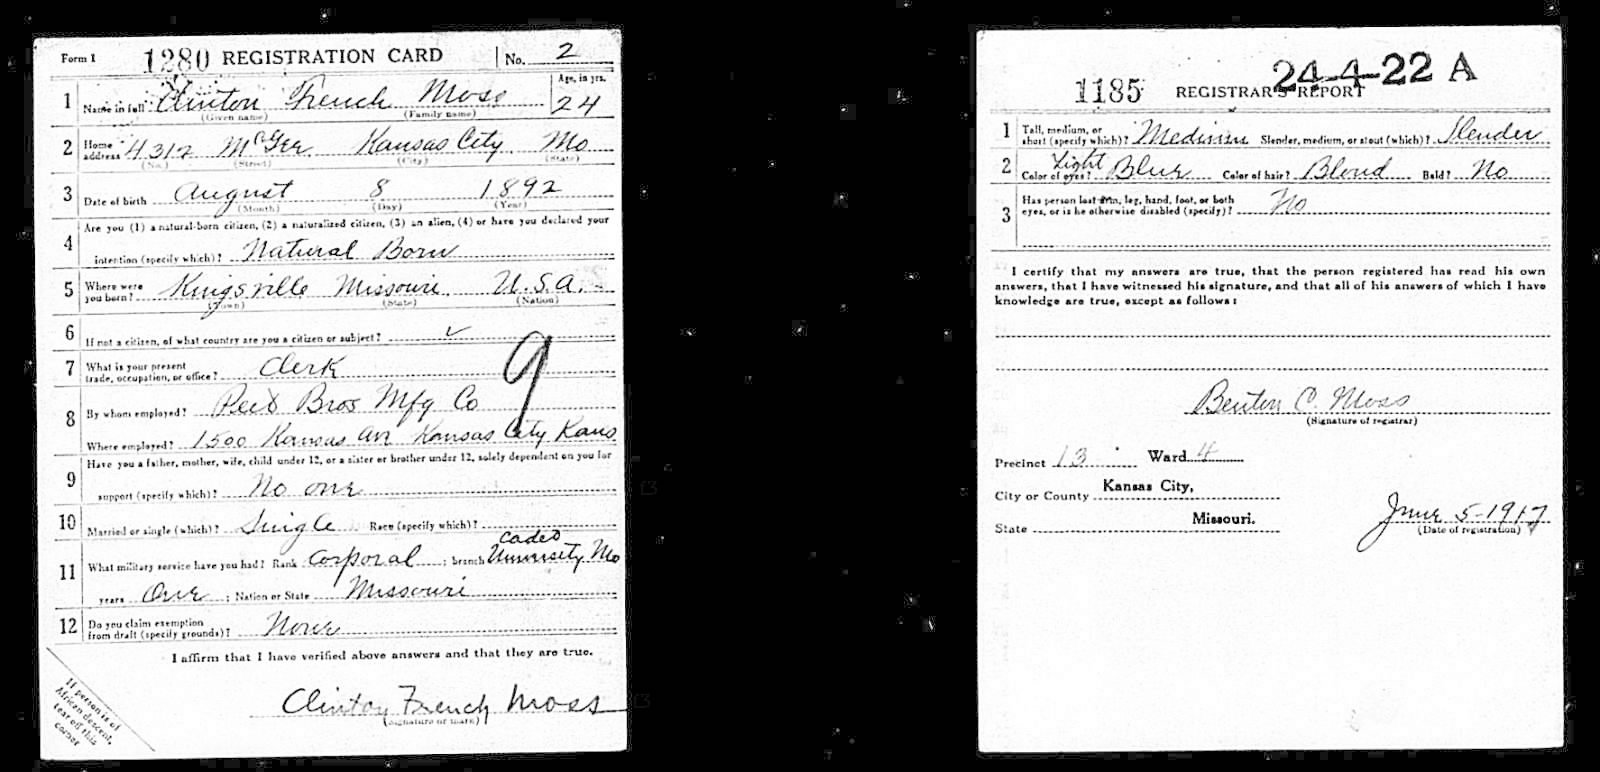 Form 1 1280 REGISTRATION CARD No. 2
1 Name in full Clinton French Moss Age, in yrs. 24
(Given name) (Family name)
2 Home address 4312 McGee Kansas City Mo
(No.) (Street) (City) (State)
3 Date of birth August 8 1892
(Month) (Day) (Year)
4 Are you (1) a natural-born citizen, (2) a naturalized citizen, (3) an alien, (4) or have you declared your
intention (specify which)? Natural Born
5 Where were you born? Kingsville Missouri U.S.A.
(Town) (State) (Nation)
6 If not a citizen, of what country are you a citizen or subject? ✓
7 What is your present trade, occupation, or office? Clerk
9
8 By whom employed? Peet Bros Mfg Co
Where employed? 1500 Kansas Av Kansas City Kans
9 Have you a father, mother, wife, child under 12, or a sister or brother under 12, solely dependent on you for
support (specify which)? No one
10 Married or single (which)? Single Race (specify which)?
cadet
11 What military service have you had? Rank Corporal ; branch University Mo
years One ; Nation or State Missouri
12 Do you claim exemption from draft (specify grounds)? None
I affirm that I have verified above answers and that they are true.
Clinton French Moss
(Signature or mark)
If person is of
African descent,
tear off this
corner
24-4-22 A
1185 REGISTRAR'S REPORT
1 Tall, medium, or short (specify which)? Medium Slender, medium, or stout (which)? Slender
2 Color of eyes? Light Blue Color of hair? Blond Bald? No
3 Has person lost arm, leg, hand, foot, or both eyes, or is he otherwise disabled (specify)? No
I certify that my answers are true, that the person registered has read his own
answers, that I have witnessed his signature, and that all of his answers of which I have
knowledge are true, except as follows:
Benton C. Moss
(Signature of registrar)
Precinct 13 Ward 4
City or County Kansas City,
State Missouri.
June 5-1917
(Date of registration)